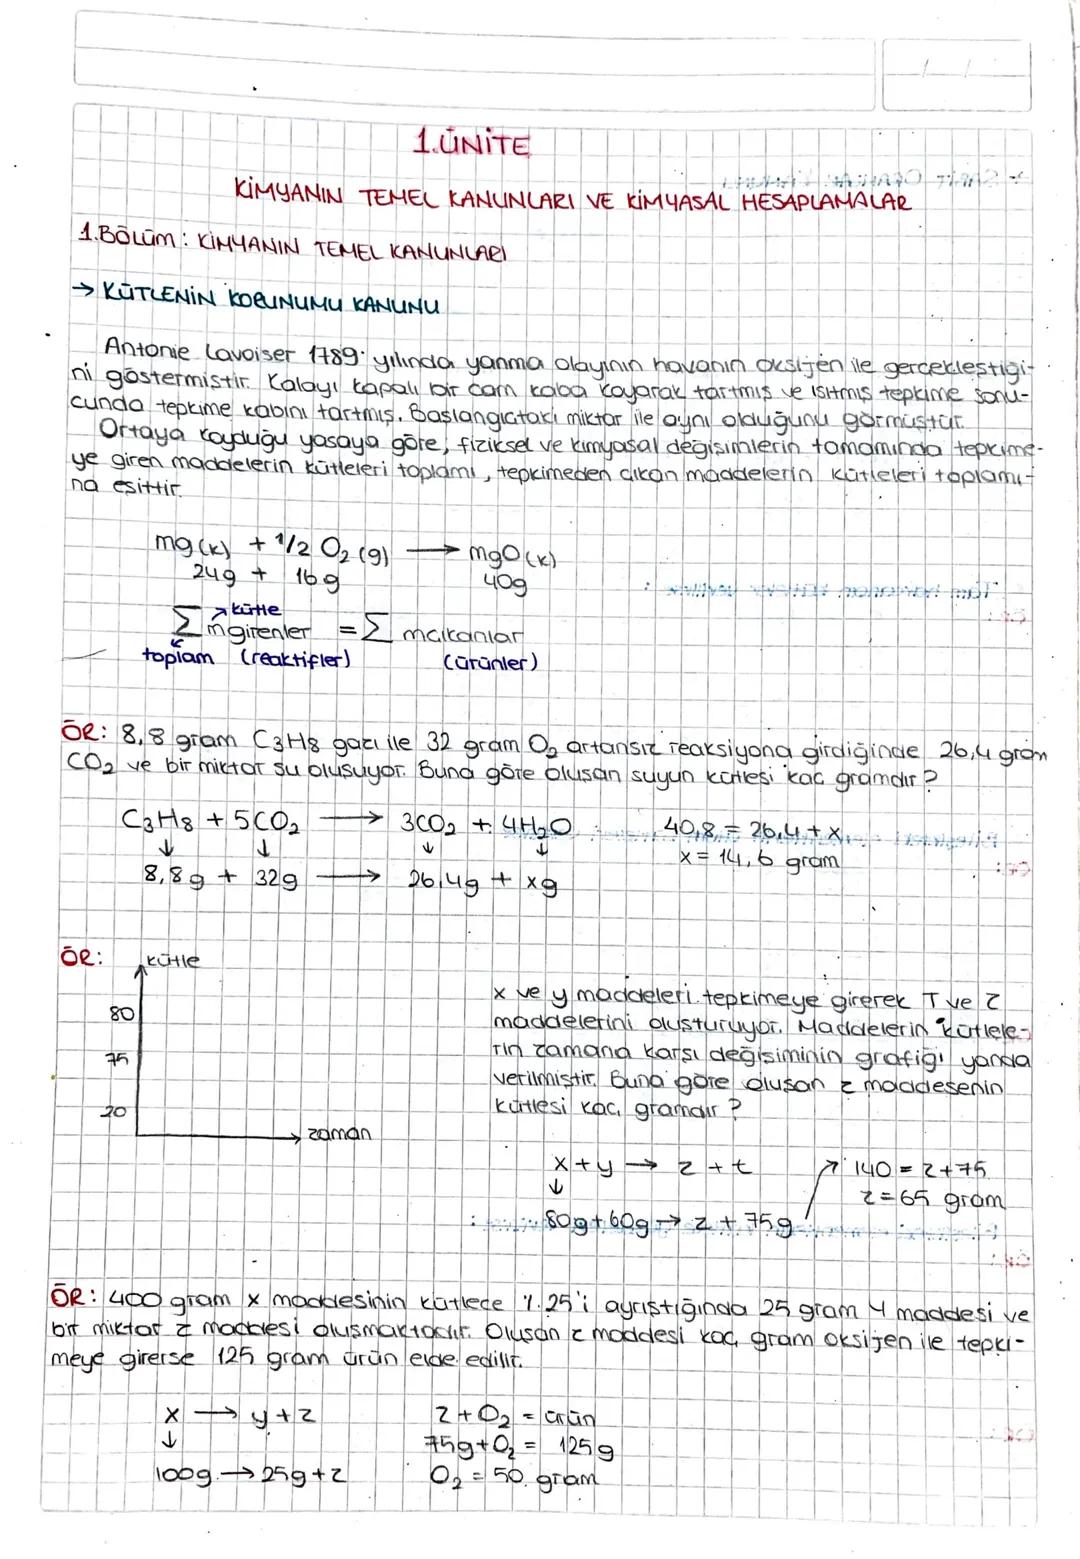 1.ÜNİTE
KİMYANIN TEMEL KANUNLARI VE KİMYASAL HESAPLAMALAR
1.BÖLÜM: KİMYANIN TEMEL KANUNLARI
→ KÜTLENİN KORUNUMU KANUNU
Antonie Lavoiser 1789 yılında yanma olayının havanın oksijen ile gerçekleştiği-
ni göstermiştir. Kalayı kapalı bir cam kaba koyarak tartmış ve ısıtmış tepkime sonu-
cunda tepkime kabını tartmış. Başlangıçtaki miktar ile aynı olduğunu görmüştür.
Ortaya koyduğu yasaya göre, fiziksel ve kimyasal değişimlerin tamamında tepkime-
ye giren maddelerin kütleleri toplamı, tepkimeden çıkan maddelerin kütleleri toplamı-
na eşittir.
mg(k) + 1/2 O₂(g) → mgO(k)
24g + 16g 40g
↗ kütle
Σ mgirenler = Σ mçıkanlar
toplam (reaktifler) (ürünler)
ÖR: 8,8 gram C3H8 gazı ile 32 gram O₂ artansız reaksiyona girdiğinde 26,4 gram
CO₂ ve bir miktar su oluşuyor. Buna göre oluşan suyun kütlesi kaç gramdır?
C3H8 + 5CO₂ → 3CO₂ + 4H₂O 40,8 = 26,4 + x
↓ ↓ ↓ ↓ x = 14,6 gram
8,8g + 32g → 26,4g + xg
ÖR: kütle
x ve y maddeleri tepkimeye girerek T ve Z
80 maddelerini oluşturuyor. Maddelerin kütlele-
75 rin zamana karşı değişiminin grafiği yanda
verilmiştir. Buna göre oluşan z maddesenin
20 kütlesi kaç gramdır?
zaman
x + y → z + t ↗ 140 = z + 75
↓ z = 65 gram
80g + 60g → z + 75g
ÖR: 400 gram x maddesinin kütlece %25'i ayrıştığında 25 gram Y maddesi ve
bir miktar z maddesi oluşmaktadır. Oluşan z maddesi kaç gram oksijen ile tepki-
meye girerse 125 gram ürün elde edilir.
x → y + z Z + O₂ = ürün
↓ 75g + O₂ = 125g
100g → 25g + z O₂ = 50 gram